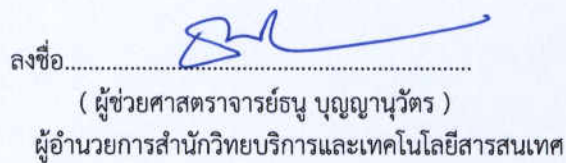 ลงชื่อ........................................................................
( ผู้ช่วยศาสตราจารย์ธนู บุญญานุวัตร )
ผู้อำนวยการสำนักวิทยบริการและเทคโนโลยีสารสนเทศ